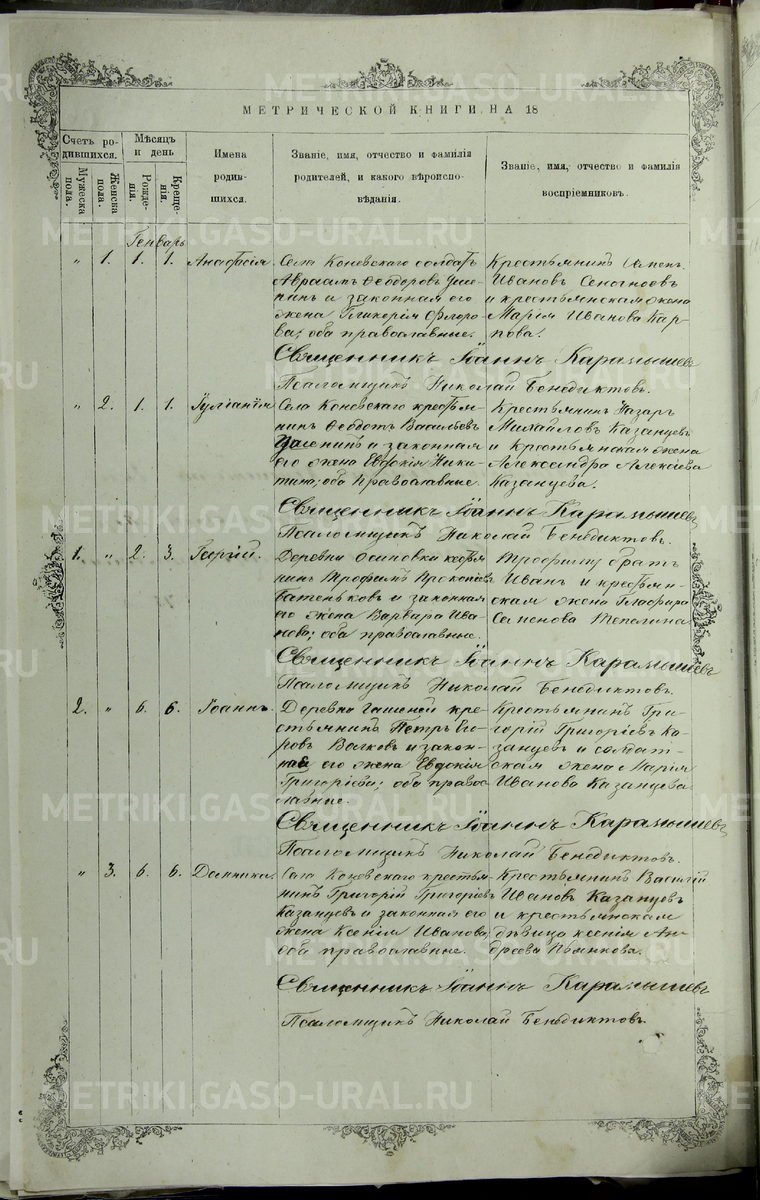 МЕТРИЧЕСКОЙ КНИГИ, НА 18
Счетъ родившихся.
Мужеска пола.
Женска пола.
Мѣсяцъ и день
Рожденія.
Крещенія.
Имена родившихся.
Званіе, имя, отчество и фамилія родителей, и какого вѣроисповѣданія.
Званіе, имя, отчество и фамилія воспріемниковъ.
Генварь
„ 1. 1. 1. Анастасія.
Села Коневскаго солдатъ
Авраамъ Ѳеодоровъ
и законная его
жена Гликерія Фролова;
оба православные.
Крестьянинъ Семенъ
Ивановъ
и крестьянская жена
Марія Иванова Карпова.
Священникъ Іоаннъ Карамышевъ
Псаломщикъ Николай Бенедиктовъ.
„ 2. 1. 1. Іуліанія.
Села Коневскаго крестьянинъ
Ѳеодотъ Васильевъ
и законная
его жена Евдокія Никитина;
оба православные.
Крестьянинъ Назаръ
Михайловъ Казанцевъ
и крестьянская жена
Александра Алексіева
Казанцева.
Священникъ Іоаннъ Карамышевъ
Псаломщикъ Николай Бенедиктовъ.
1. „ 2. 3. Георгій.
Деревни Осиновки крестьянинъ
Трофимъ Прокопіевъ
Батеньковъ и законная
его жена Варвара Иванова;
оба православные.
Трофиму братъ
Иванъ и крестьянская
жена Глафира
Семенова Тепелина
Священникъ Іоаннъ Карамышевъ
Псаломщикъ Николай Бенедиктовъ.
2. „ 6. 6. Іоаннъ.
Деревни Гашеней крестьянинъ
Петръ Егоровъ
Волковъ и законная
его жена Евдокія
Григоріева; оба православные.
Крестьянинъ Григорій
Григоріевъ Казанцевъ
и солдатская
жена Марія
Иванова Казанцева
Священникъ Іоаннъ Карамышевъ
Псаломщикъ Николай Бенедиктовъ.
„ 3. 6. 6. Домника.
Села Коневскаго крестьянинъ
Григорій Григоріевъ
Казанцевъ и законная его
жена Ксенія Иванова;
оба православные.
Крестьянинъ Василій
Ивановъ Казанцевъ
и крестьянская
дѣвица Ксенія Андреева
Пьянкова.
Священникъ Іоаннъ Карамышевъ
Псаломщикъ Николай Бенедиктовъ
METRIKI.GASO-URAL.RU